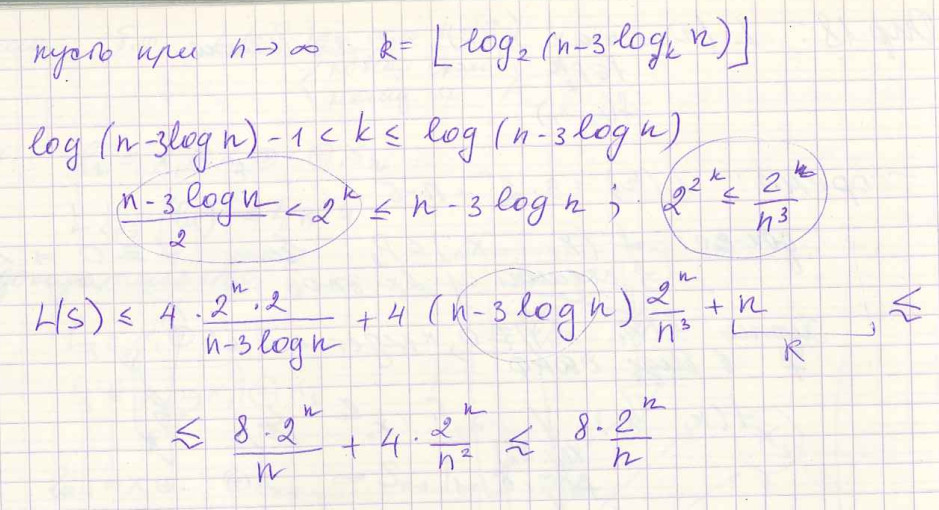 пусть при n → ∞ k = ⌊log₂(n-3logₖ n)⌋
log (n-3logn) - 1 < k ≤ log (n-3logn)
(n-3logn)/2 < 2^k ≤ n-3logn ; 2^(2^k) ≤ 2^n/n^3
L(S) ≤ 4 · (2^n · 2)/(n-3logn) + 4 (n-3logn) 2^n/n^3 + n ≲
k
≲ (8 · 2^n)/n + 4 · 2^n/n^2 ≲ 8 · 2^n/n